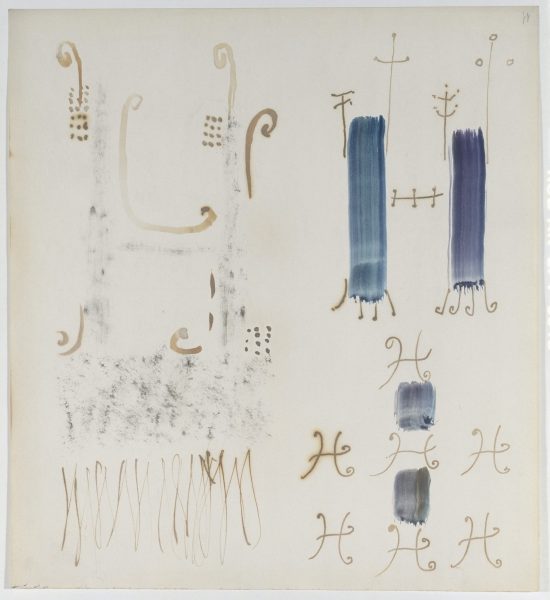 H
H
H H H
H H H